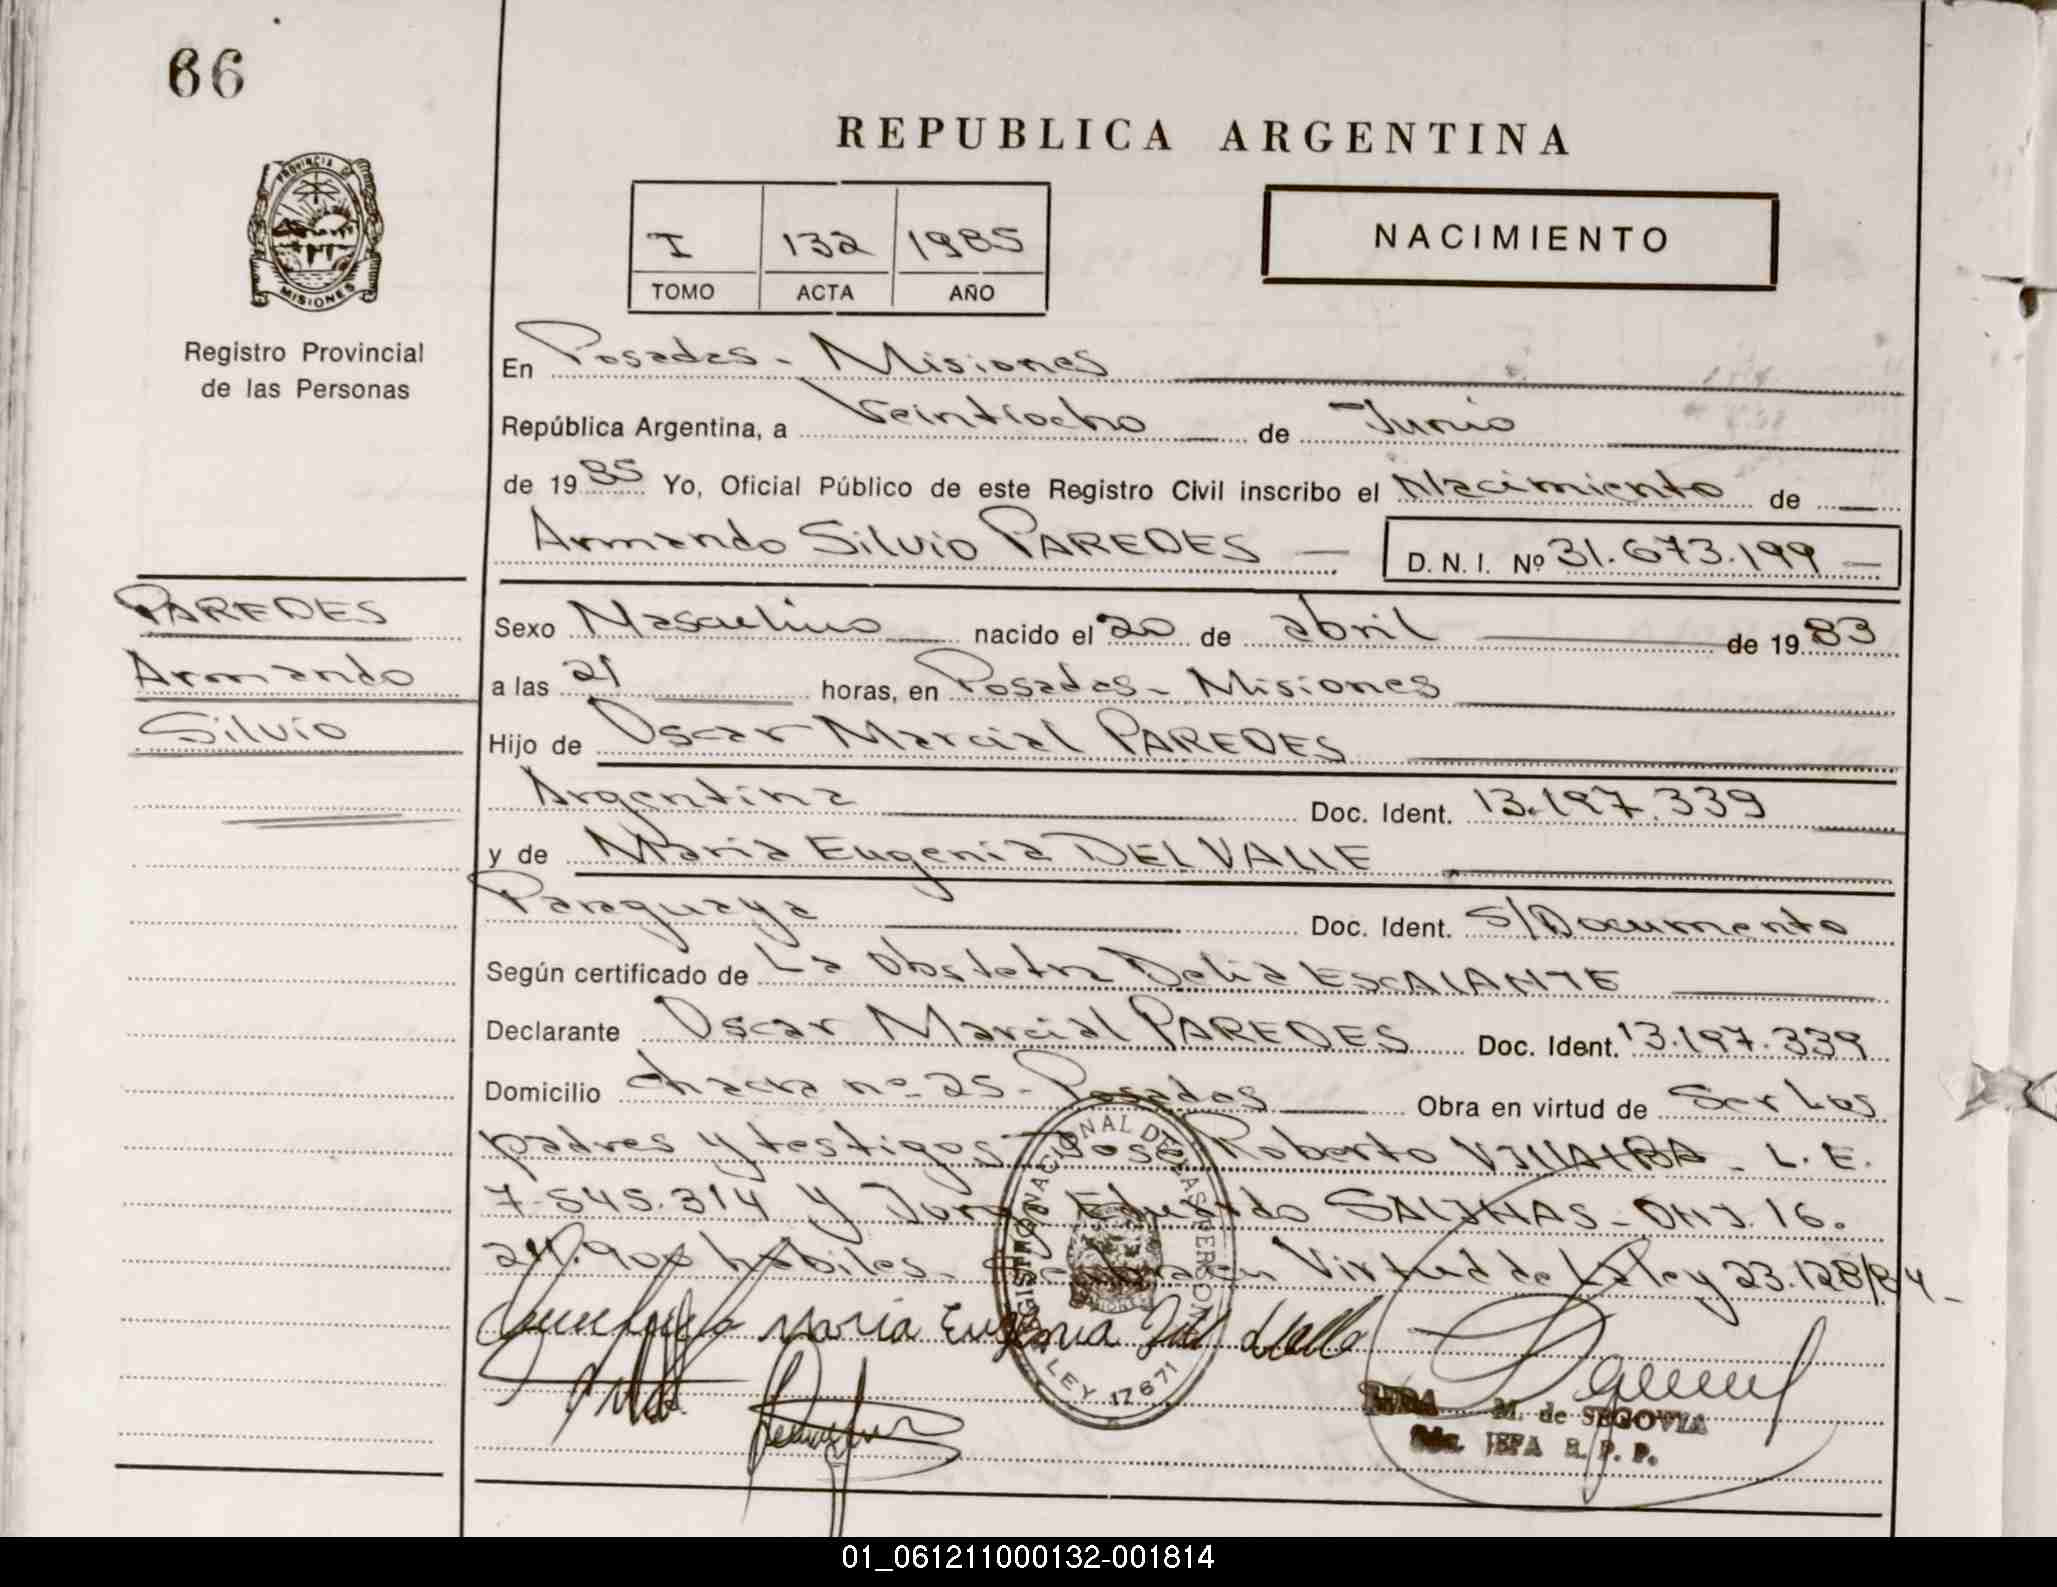 66
REPUBLICA ARGENTINA
PROVINCIA DE
MISIONES
I 132 1985
TOMO ACTA AÑO
NACIMIENTO
Registro Provincial
de las Personas
En Posadas - Misiones
República Argentina, a Veintiocho de Junio
de 1985 Yo, Oficial Público de este Registro Civil inscribo el Nacimiento de
Armando Silvio PAREDES D. N. I. Nº 31.673.199
PAREDES
Armando
Silvio
Sexo Masculino nacido el 20 de abril de 1983
a las 21 horas, en Posadas - Misiones
Hijo de Oscar Marcial PAREDES
Argentina Doc. Ident. 13.197.339
y de María Eugenia DEL VALLE
Paraguaya Doc. Ident. S/Documento
Según certificado de La Obstetra Delia ESCALANTE
Declarante Oscar Marcial PAREDES Doc. Ident. 13.197.339
Domicilio chacra nº 25 - Posadas Obra en virtud de Ser Los
padres y testigos José Roberto VILLALBA - L. E.
7.545.314 y Jorge Eduardo SALINAS - DNI. 16.
hábiles. en Virtud de La ley 23.128/84 -
REGISTRO NACIONAL DE LAS PERSONAS
LEY 17671
María Eugenia del Valle
M. de SEGOVIA
JEFA R. P. P.
01_061211000132-001814